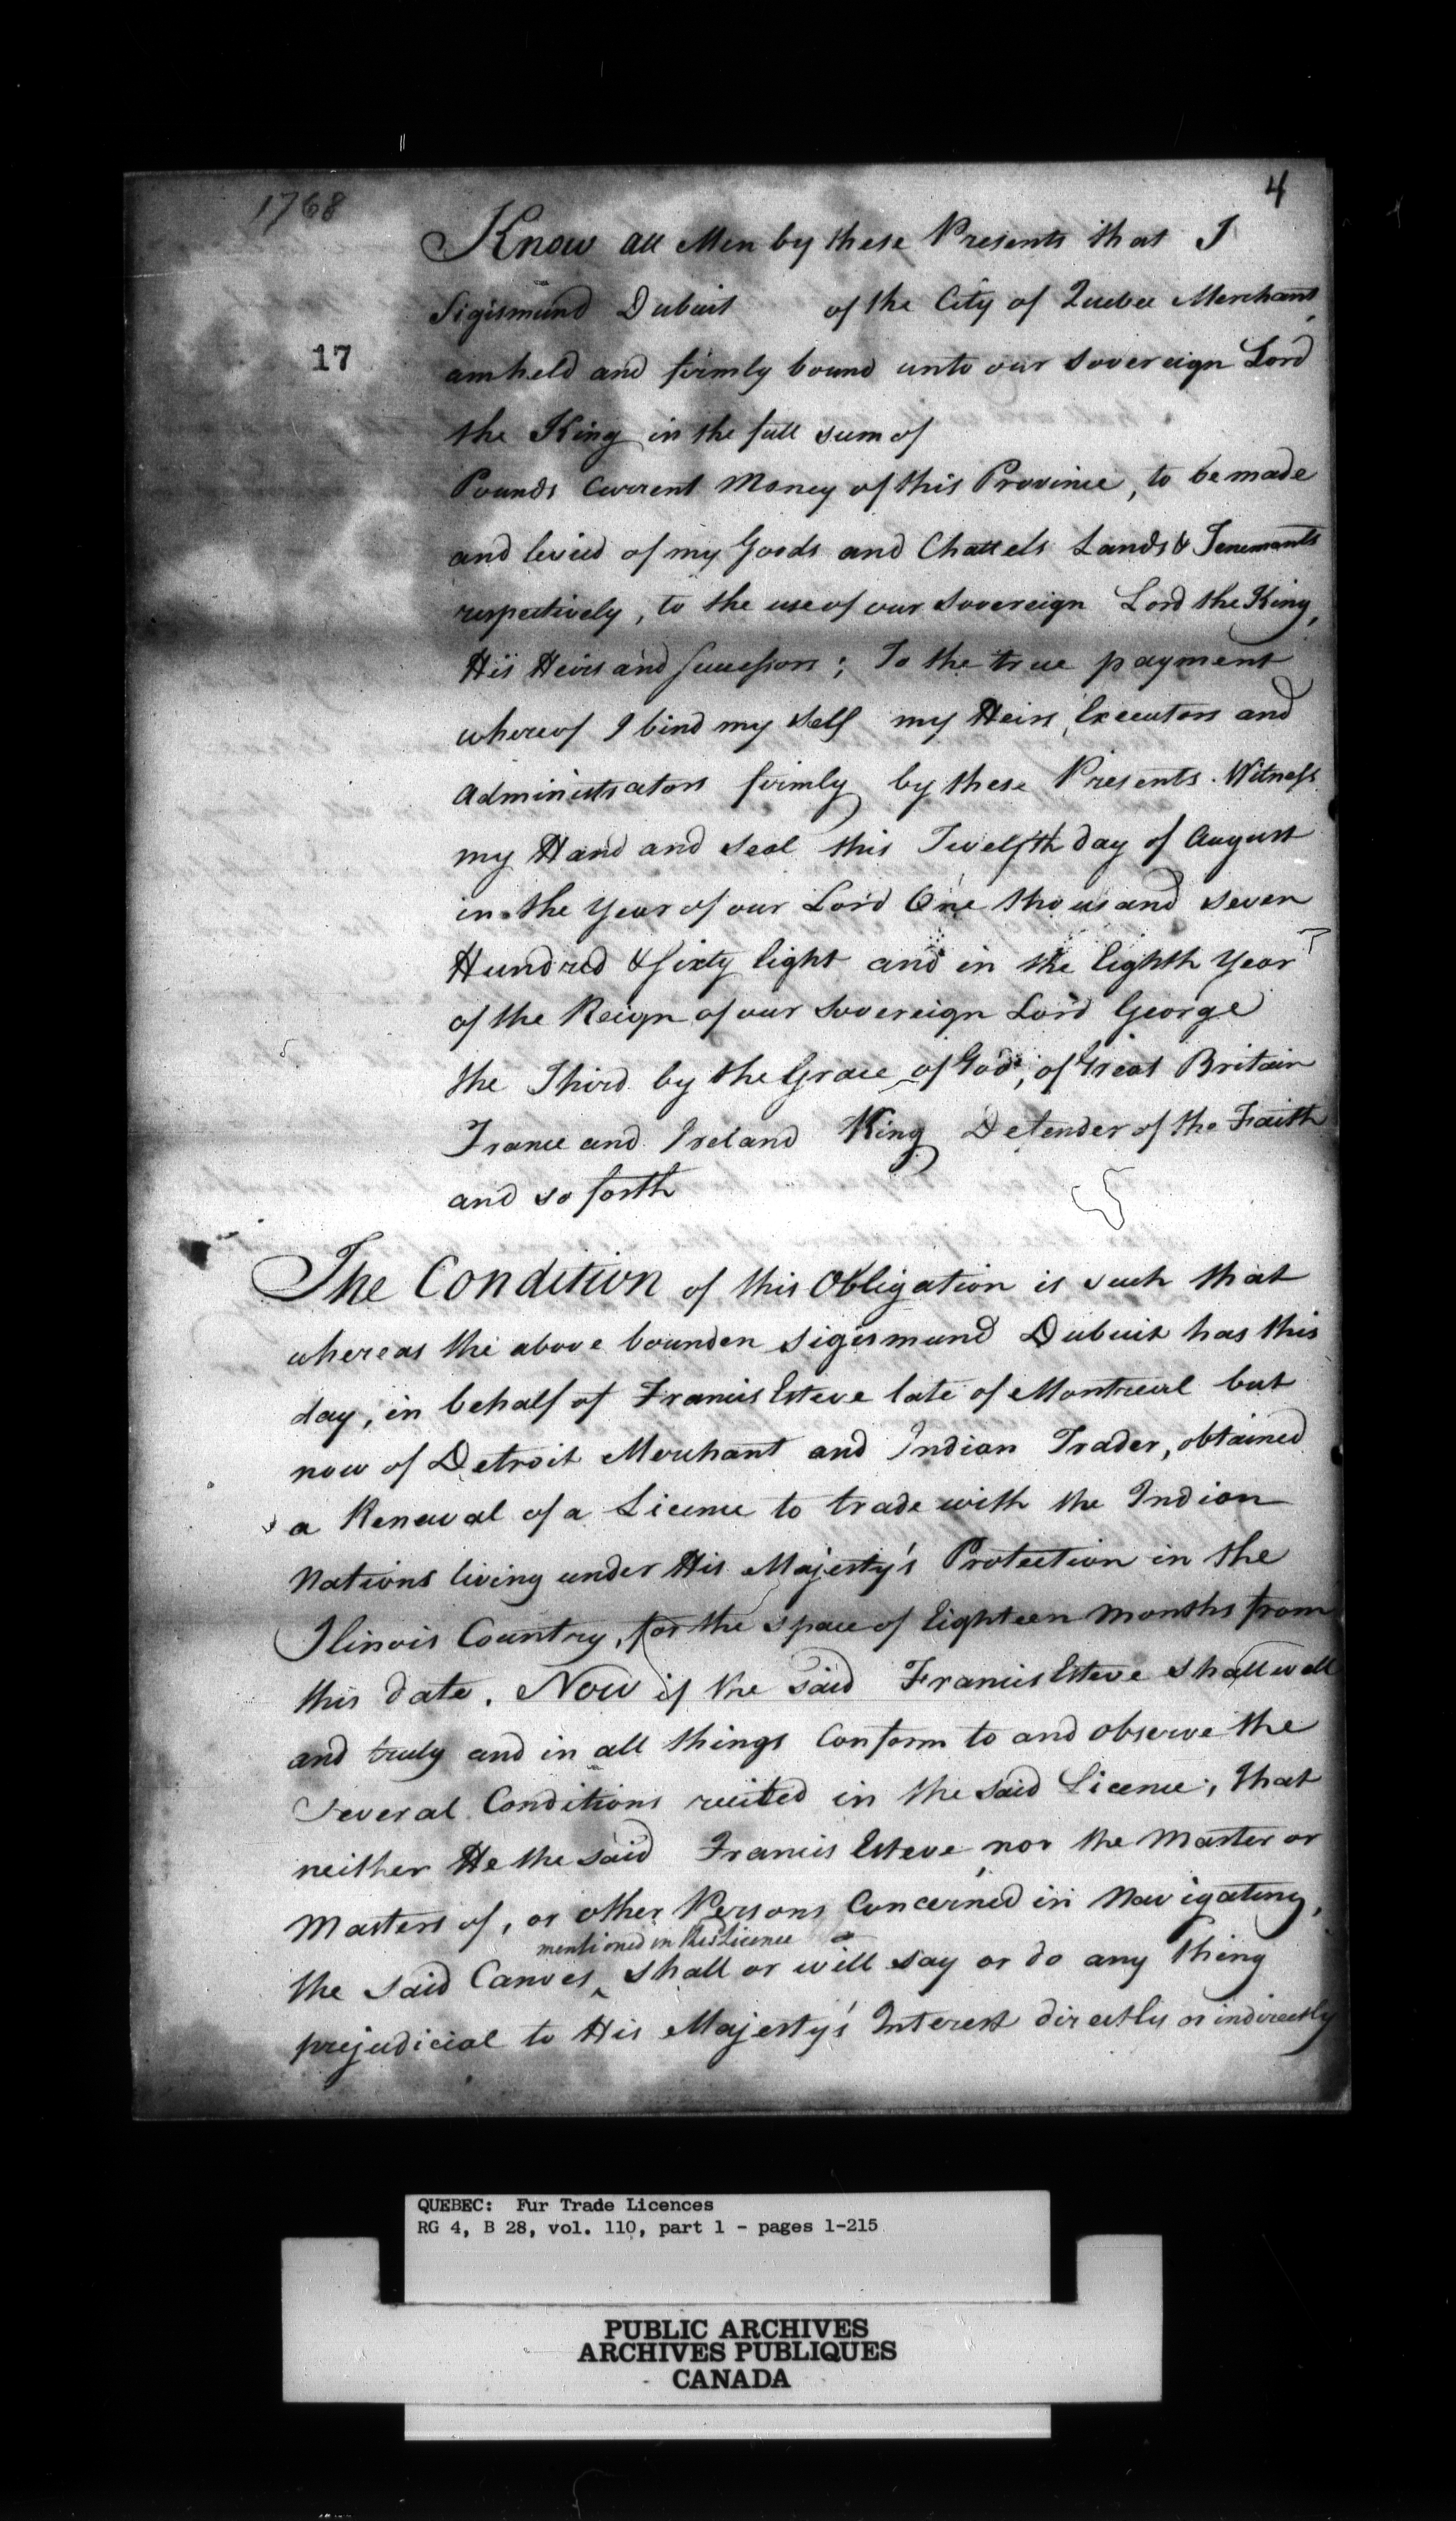 1768
4
Know all Men by these Presents that I
Sigismund Dubuit of the City of Quebec Merchant,
17
am held and firmly bound unto our Sovereign Lord
the King in the full sum of
Pounds Current Money of this Province, to be made
and levied of my Goods and Chattels Lands & Tenements
respectively, to the use of our Sovereign Lord the King,
His Heirs and Successors; To the true payment
whereof I bind my self my Heirs, Executors and
Administrators firmly by these Presents. Witness
my Hand and Seal this Twelfth day of August
in the Year of our Lord One thousand seven
Hundred & Sixty Eight and in the Eighth Year
of the Reign of our Sovereign Lord George
the Third by the Grace of God, of Great Britain
France and Ireland King Defender of the Faith
and so forth
The Condition of this Obligation is such that
whereas the above bounden Sigismund Dubuit has this
day, in behalf of Francis Esteve late of Montreal but
now of Detroit Merchant and Indian Trader, obtained
a Renewal of a Licence to trade with the Indian
Nations living under His Majesty's Protection in the
Ilinois Country, for the space of Eighteen Months from
this date. Now if the said Francis Esteve shall well
and truly and in all things Conform to and observe the
Several Conditions recited in the said Licence, that
neither He the said Francis Esteve, nor the Master or
Masters of, or other Persons Concerned in Navigating,
mentioned in this Licence
the said Canoes ‸ shall or will say or do any thing
prejudicial to His Majesty's Interest directly or indirectly
QUEBEC: Fur Trade Licences
RG 4, B 28, vol. 110, part 1 - pages 1-215
PUBLIC ARCHIVES
ARCHIVES PUBLIQUES
CANADA